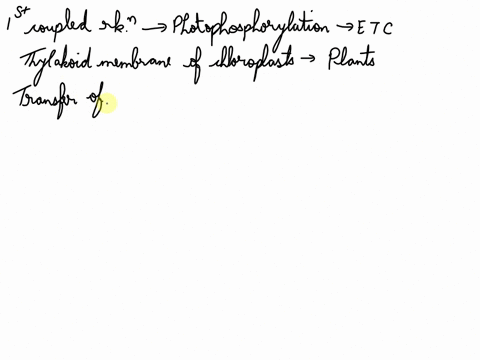 1st coupled rk.n → Photophosphorylation → ETC
Thylakoid membrane of chloroplasts → Plants
Transfer of